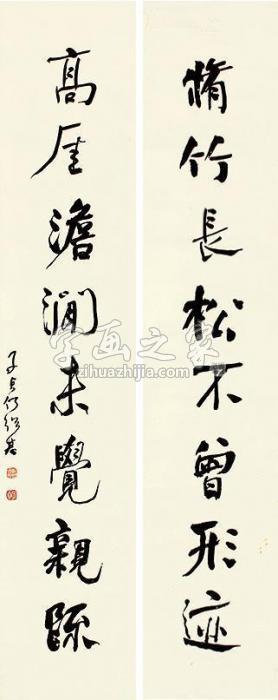 脩竹長松不曾形迹
高厓澹澗未覺親疏
子貞何紹基
字画之家
zihuazhijia.com